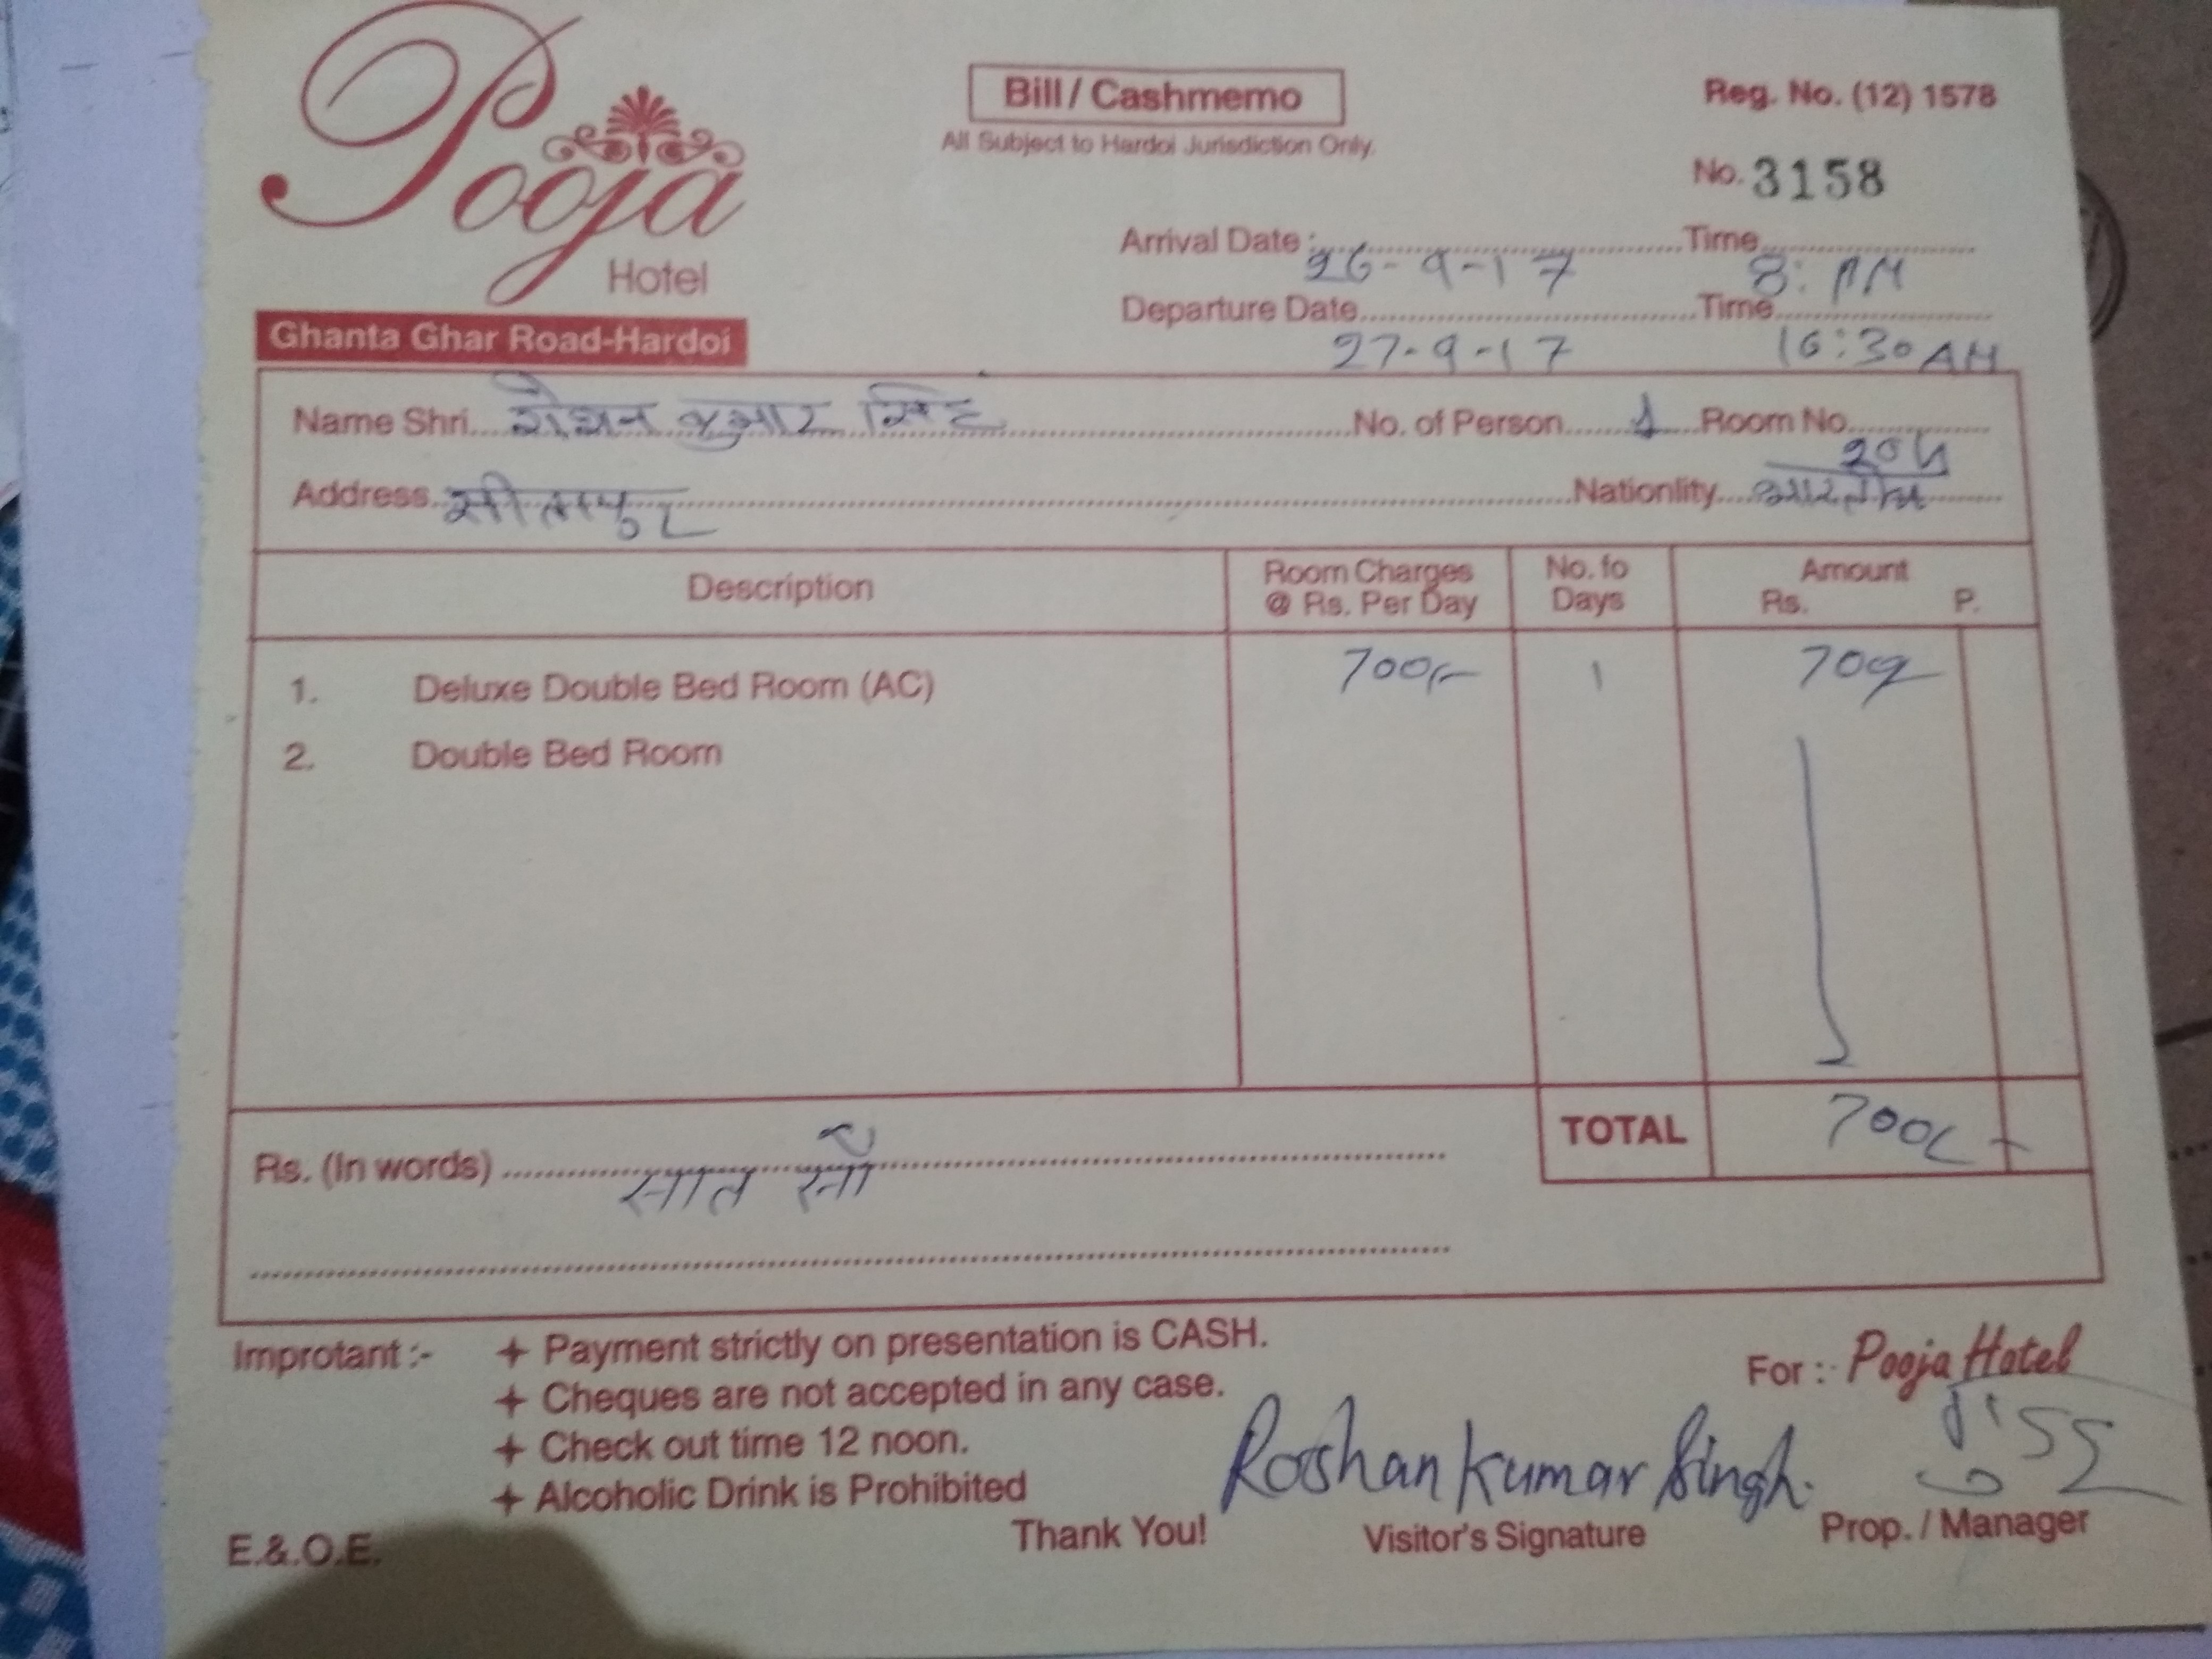 Pooja
Hotel
Ghanta Ghar Road-Hardoi
Bill / Cashmemo
All Subject to Hardoi Jurisdiction Only.
Reg. No. (12) 1578
No. 3158
Arrival Date : 26-9-17 Time 8: PM
Departure Date 27-9-17 Time 10:30 AM
Name Shri रोशन कुमार सिंह No. of Person 1 Room No. 204
Address सीतापुर Nationlity भारतीय
Description Room Charges @ Rs. Per Day No. fo Days Amount Rs. P.
1. Deluxe Double Bed Room (AC) 700/- 1 700
2. Double Bed Room
TOTAL 700/-
Rs. (In words) सात सौ
Improtant :- + Payment strictly on presentation is CASH.
+ Cheques are not accepted in any case.
+ Check out time 12 noon.
+ Alcoholic Drink is Prohibited
E.&.O.E.
Thank You!
Roshan Kumar Singh.
Visitor's Signature
For : Pooja Hotel
Prop. / Manager